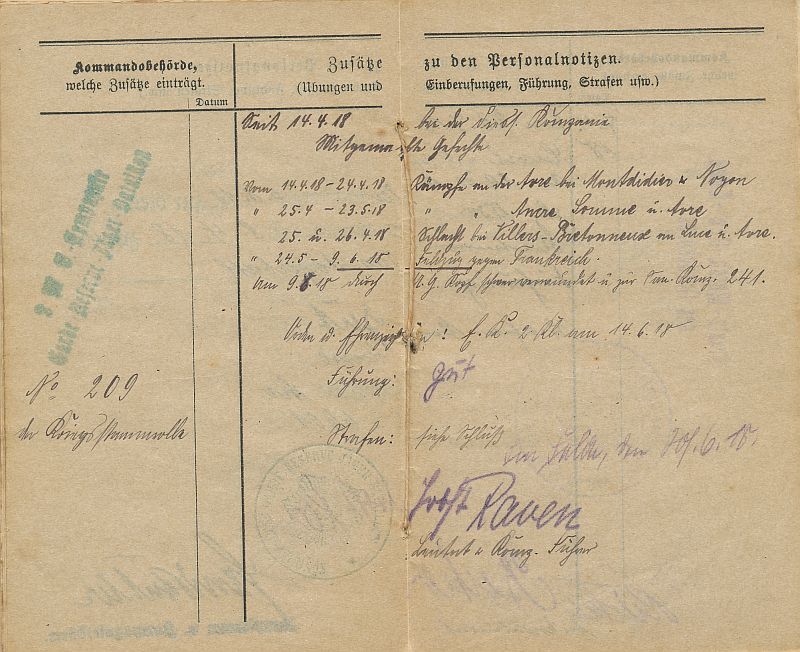 Kommandobehörde,
welche Zusätze einträgt.
Datum
Zusätze zu den Personalnotizen.
(Übungen und Einberufungen, Führung, Strafen usw.)
Seit 14.4.18 bei der diess. Kompanie
Mitgemachte Gefechte
Vom 14.4.18 – 24.4.18 Kämpfe an der Avre bei Montdidier u. Noyon
" 25.4 – 23.5.18 " " Ancre, Somme u. Avre
25. u. 26.4.18 Schlacht bei Villers-Bretonneux an Luce u. Avre.
" 24.5 – 9.6.18 Feldzug gegen Frankreich.
Am 9.6.18 durch A.G. Kopf schwer verwundet u. zur San. Komp. 241.
Orden u. Ehrenzeichen: E.K. 2 Kl. am 14.6.18
Führung: gut
Strafen: siehe Schluß
No 209
der Kriegsstammrolle
Im Felde, den 20.6.18.
Raven
Leutnt u. Komp.-Führer